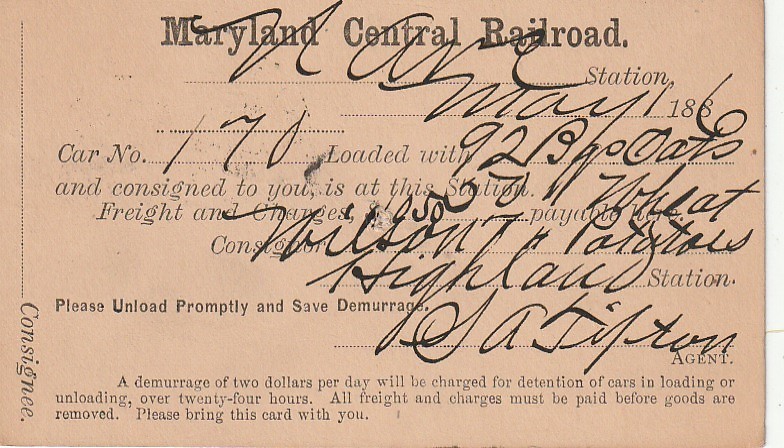 Maryland Central Railroad.
N Ave Station,
May 1 186
Car No. 170 Loaded with 92 Bgs Oats
and consigned to you, is at this Station. Wheat
Freight and Charges, $10.50 payable here.
Consignor Wilson Potatoes
Highland Station.
Please Unload Promptly and Save Demurrage.
S A Tipton
AGENT.
Consignee.
A demurrage of two dollars per day will be charged for detention of cars in loading or
unloading, over twenty-four hours. All freight and charges must be paid before goods are
removed. Please bring this card with you.